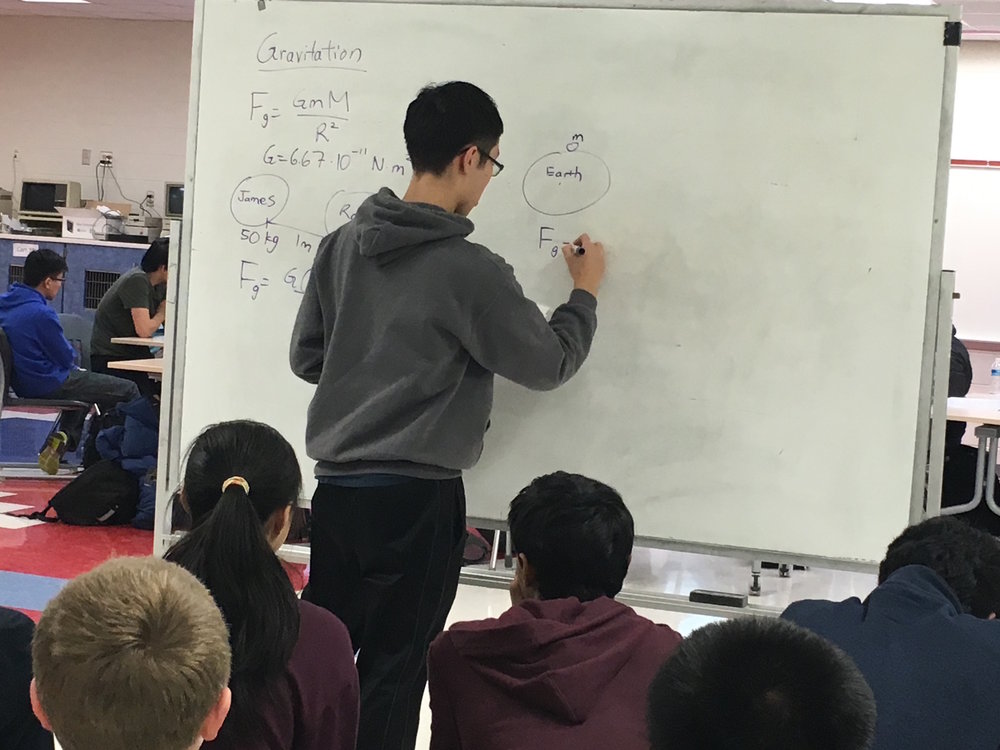 Gravitation
F_g = GmM / R²
G=6.67·10⁻¹¹ N·m
James
50 kg 1m
F_g= G
m
Earth
F_g =